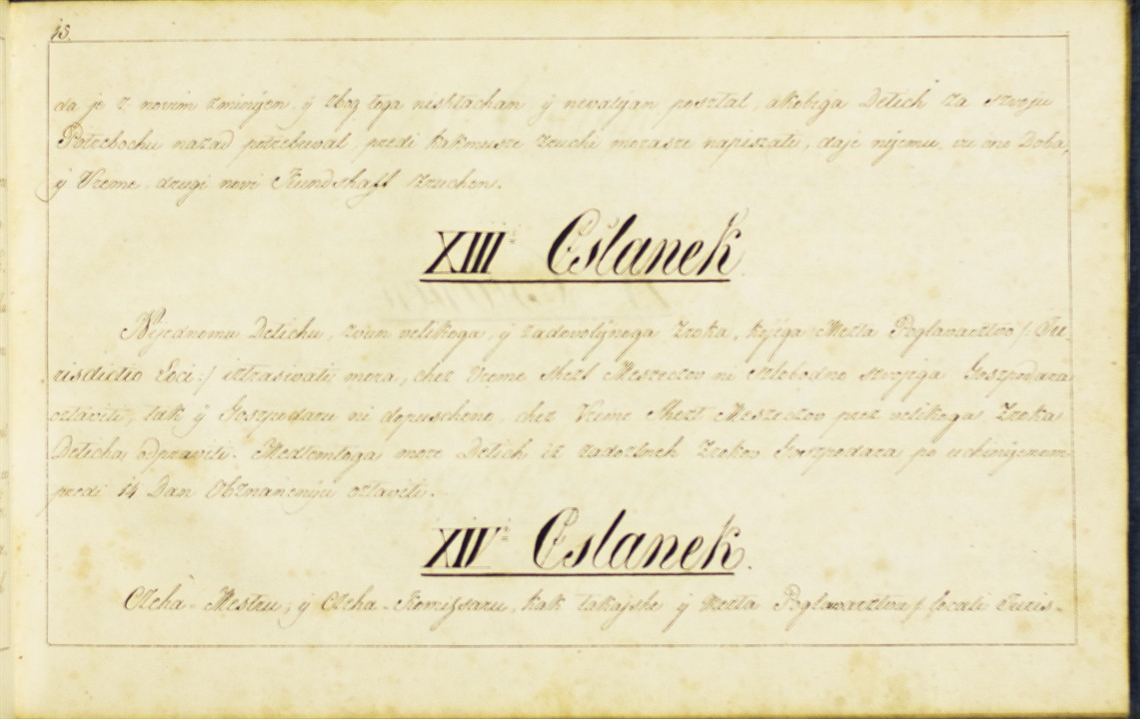 18.
da je z novim zminyen y zbog toga nishtachan y nevalyan posztal, akobiga Detich za szvoju
Potrebochu nazad potrebuval, predi kakmusze zruchi morasze napiszati, daje nyemu, vu ono Doba,
y Vreme drugi novi Kundshaft zruchen.
XIII Cslanek
Nijednomu Detichu, zvun velikoga, y zadovolynoga Zroka, kojega Mezta Poglavarztvo /: Ju-
risdictio Loci :/ iztrasivati mora, chez Vreme Shezt Meszeczov ni szlobodno szvojega Goszpodara
oztaviti, tak y Goszpodaru ni dopuscheno, chez Vreme Shezt Meszeczov prez velikoga Zroka
Deticha odpraviti. Medtemtoga more Detich iz zadoztneh Zrokov Goszpodara po uchinyenom
predi 14 Dan Obznanenyu oztaviti.
XIV Cslanek.
Czeha-Mestru, y Czeha-Komiszaru, kak takajshe y Mezta Poglavarztvu /: Locali Juris-